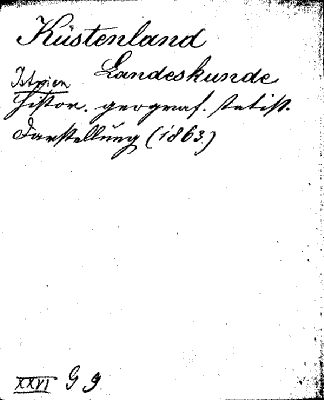 Küstenland
Landeskunde
Istrien
histor. geograf. statist.
Darstellung (1863.)
XXVI G g